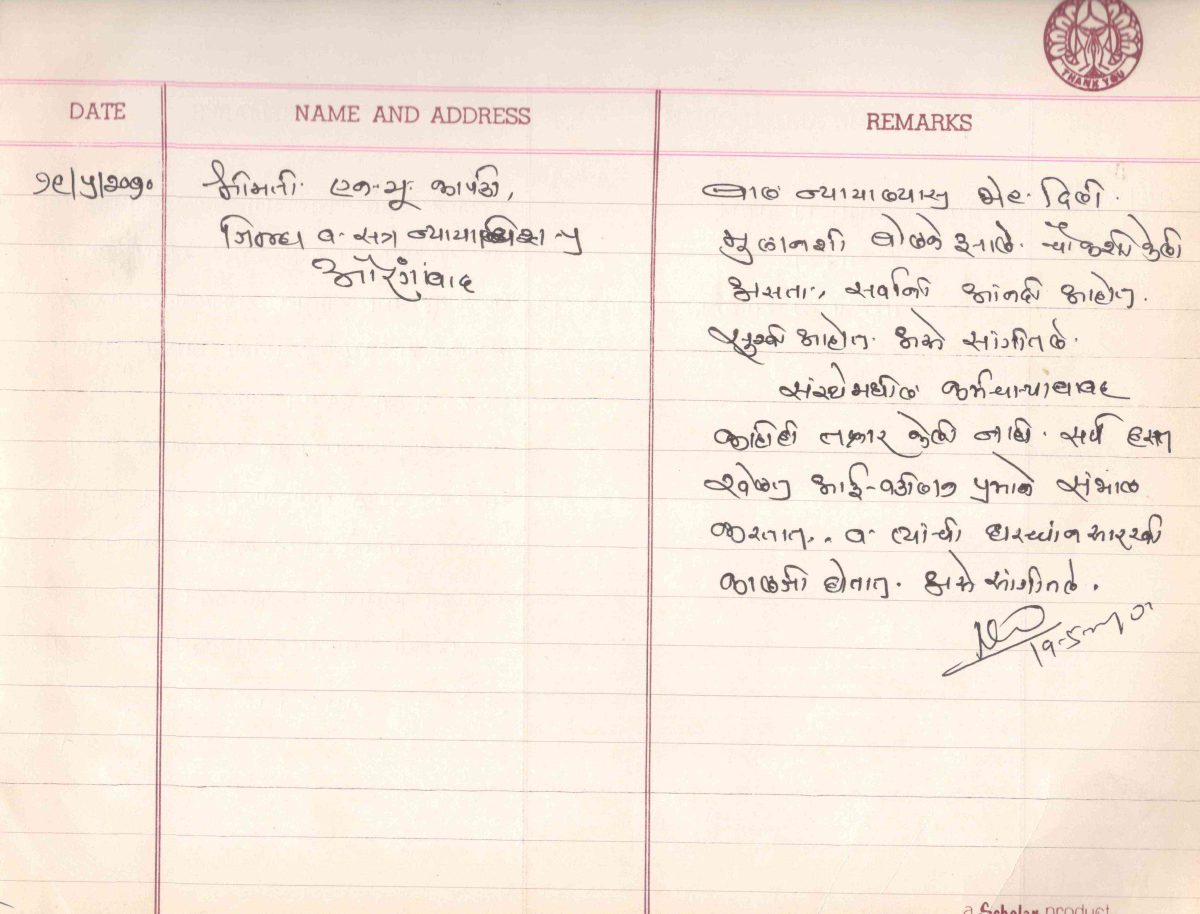 THANK YOU
DATE
NAME AND ADDRESS
REMARKS
१९/५/२०१०
श्रीमती. एन. यू. कापडी,
जिल्हा व सत्र न्यायाधिश-५
औरंगाबाद
बाल न्यायालयास भेट दिली.
मुलानशी बोलणे झाले. चौकशी केली
असता, सर्वानी आंनदी आहोत.
सुखी आहोत. असे सांगीतले.
संस्थेमधील कर्मचाऱ्याबाबद
काहीही तक्रार केली नाही. सर्व हसत
खेळत आई-वडीलान प्रमाणे संभाळ
करतात.. व त्यांची
काळजी होतात. असे सांगीतले.
19-5-
a Scholar product